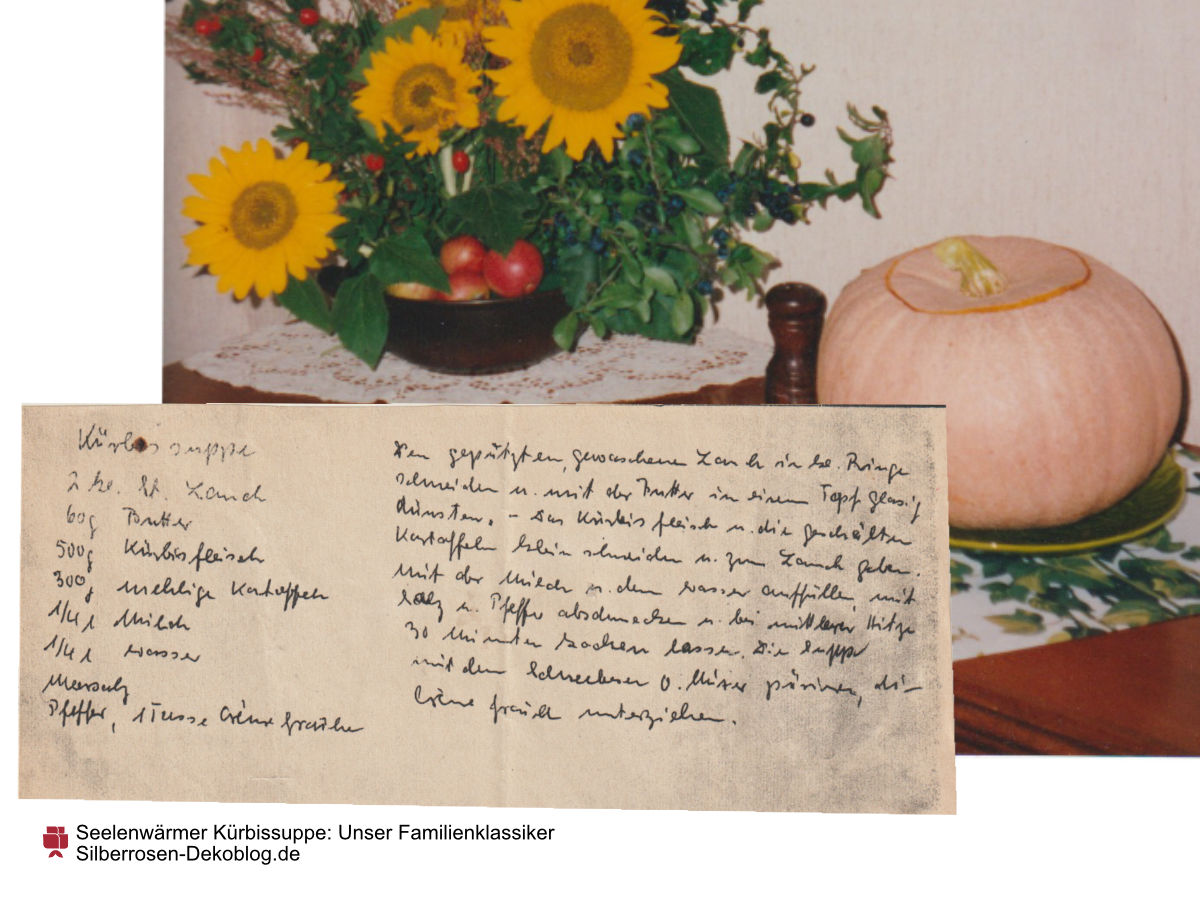 Kürbissuppe
2 kl. St. Lauch
60g Butter
500g Kürbisfleisch
300g mehlige Kartoffeln
1/4 l Milch
1/4 l Wasser
Meersalz
Pfeffer, 1 Tasse Crème fraiche
Den geputzten, gewaschenen Lauch in kl. Ringe
schneiden u. mit der Butter in einem Topf glasig
dünsten. – Das Kürbisfleisch u. die geschälten
Kartoffeln klein schneiden u. zum Lauch geben.
Mit der Milch u. dem Wasser auffüllen, mit
Salz u. Pfeffer abschmecken u. bei mittlerer Hitze
30 Minuten kochen lassen. Die Suppe
mit dem Schneebesen o. Mixer pürieren, die
Crème fraich unterziehen.
Seelenwärmer Kürbissuppe: Unser Familienklassiker
Silberrosen-Dekoblog.de